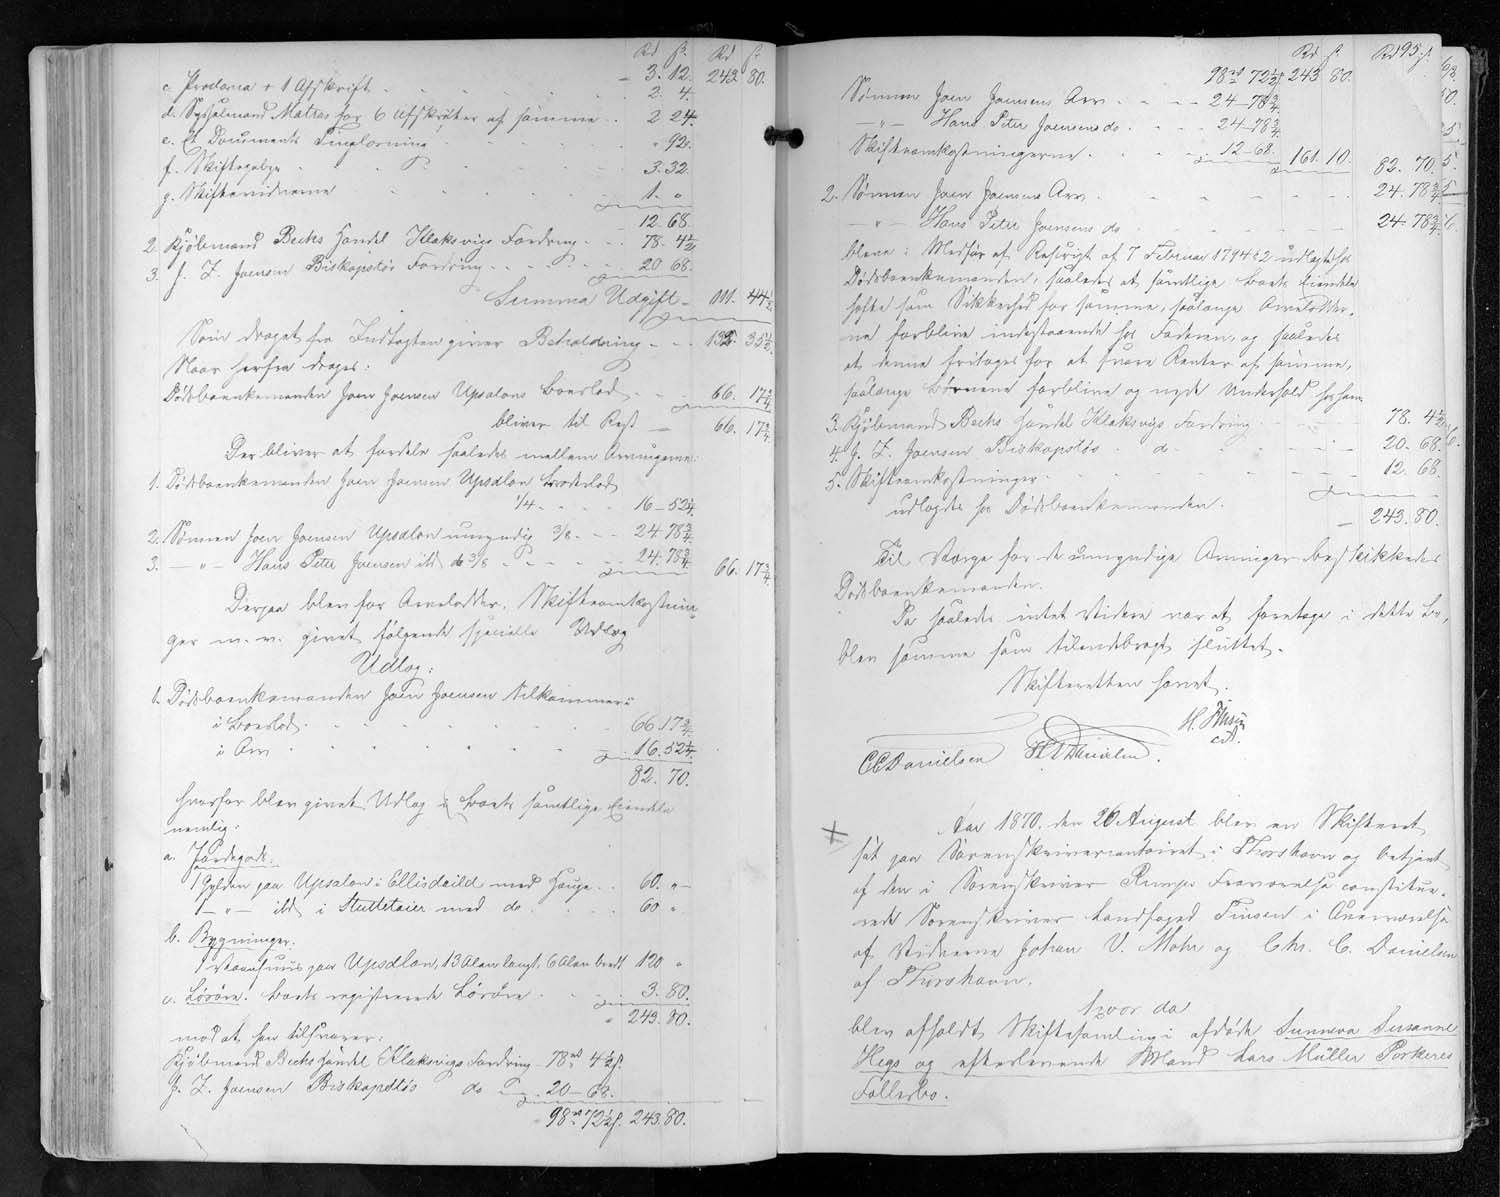 Rd ß. Rd ß.
c. Proclama + 1 Afskrift - 3. 12. 243 80.
2. 4.
d. Sysselmand Matras for 6 Afskrifter af samme 2 24.
e. Et Documents Tinglæsning " 92.
f. Skiftegebyr 3. 32.
g. Skiftevidnerne 1. "
12. 68.
2. Kjøbmand Becks Handel Klaksvigs Fordring 78. 4½
3. J. Z. Joensen Biskopstøs Fordring 20. 68.
Summa Udgift - 111. 44½
Som draget fra Indtægten giver Beholdning 132. 35½
Naar herfra drages:
Dødsboenkemanden Joen Joensen Upsalons Boeslod 66. 17¾
bliver til Rest 66. 17¾
Der bliver at fordele saaledes mellem Arvingerne:
1. Dødsboenkemanden Joen Joensen Upsalon Broderlod
1/4 16 - 52¼
2. Sønnen Joen Joensen Upsalon umyndig 3/8 24. 78¾
3. - " - Hans Peter Joensen ibd do 3/8 24. 78¾ 66. 17¾
Derpaa blev for Arvelodder, Skifteomkostnin-
ger m. v. givet følgende specielle Udlæg
Udlæg:
1. Dødsboenkemanden Joen Joensen tilkommer:
i Boeslod 66. 17¾
i Arv 16. 52¼
82. 70.
hvorfor blev givet Udlæg i Boets samtlige Eiendele
nemlig:
a. Jordegods:
1 Gylden paa Upsalon i Ellisdeild med Hauge 60. "
1 - " - ibd i Stuttateier med do 60 "
b. Bygninger:
1 Vaanhuus paa Upsalon, 13 Alen langt, 6 Alen bredt 120 "
c. Løsøre. Boets registrerede Løsøre 3. 80.
243. 80.
mod at han tilsvarer:
Kjøbmand Becks Handel Klaksvigs Fordring 78 rd 4½ ß.
J. Z. Joensen Biskopstøs do 20 - 68.
98 rd 72½ ß. 243. 80.
195.
Rd ß. Rd ß.
98 rd 72½ ß 243 80.
Sønnen Joen Joensens Arv 24 - 78¾
- " - Hans Peter Joensens do 24 - 78¾
Skifteomkostningerne 12 - 68. 161. 10. 82. 70.
2. Sønnen Joen Joensens Arv 24. 78¾
- " - Hans Peter Joensens do 24. 78¾
bleve i Medfør af Rescript af 7 Februar 1794 § 2 udlagt hos
Dødsboenkemanden, saaledes at samtlige Boets Eiendele
hæfte som Sikkerhed for samme, saalænge Arvelodder-
ne forblive indestaaende hos Faderen, og saaledes
at denne fritages for at svare Renter af samme,
saalænge Børnene forblive og nyde Underhold hos ham
3. Kjøbmand Becks Handel Klaksvigs Fordring 78. 4½
4. J. Z. Joensen Biskopstøs do 20. 68.
5. Skifteomkostninger 12. 68.
udlagdes hos Dødsboenkemanden.
243. 80.
Til Værge for de umyndige Arvinger beskikkedes
Dødsboenkemanden.
Da saaledes intet videre var at foretage i dette Bo,
blev samme som tilendebragt sluttet.
Skifteretten hævet.
H. Finsen
cst.
C C Danielsen
Danielsen.
+ Aar 1870, den 26 August blev en Skifteret
sat paa Sorenskrivercontoiret i Thorshavn og betjent
af den i Sorenskriver Rumps Fraværelse constitue-
rede Sorenskriver Landfoged Finsen i Overværelse
af Vidnerne Johan V. Mohr og Chr. C. Danielsen
af Thorshavn.
Hvor da
blev afholdt Skiftesamling i afdøde Sunneva Susanne
Hegs og efterlevende Mand Lars Müller Porkeres
Fællesbo.